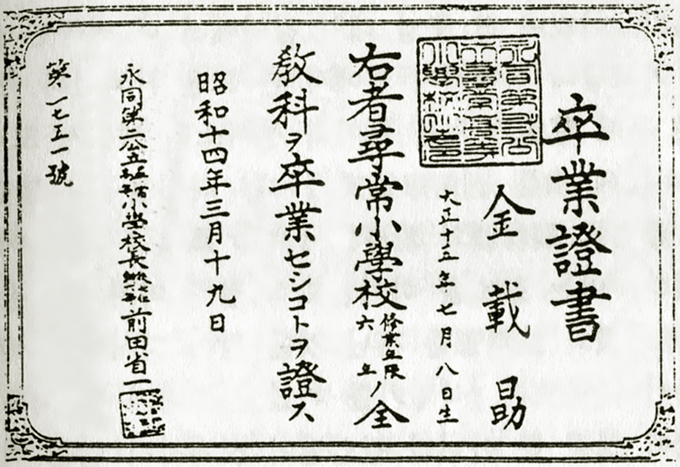 卒業證書
金載勗
大正十五年七月八日生
右者尋常小學校修業年限六年ノ全
教科ヲ卒業センコトヲ證ス
昭和十四年三月十九日
永同第二公立尋常小學校長 前田省一
第一七五一號